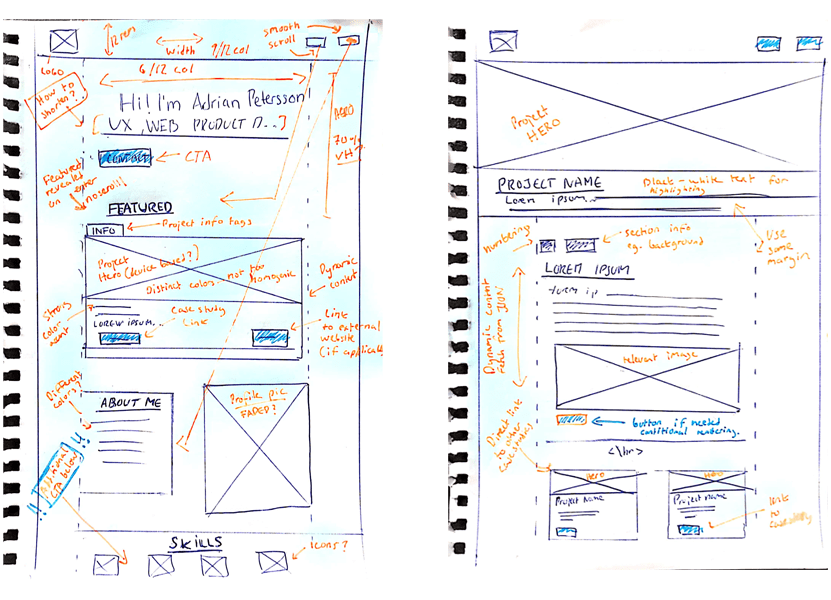 12 rem
width 9/12 col
smooth
scroll
LOGO
6/12 col
How to
shorten?
Hi! I'm Adrian Petersson
[UX, WEB PRODUCT D...]
HERO
70%
VH?
CTA
Featured
revealed
on
noscroll
FEATURED
INFO
Project info tags
Project
Hero (device based?)
Distinct colors - not too
homogenic
Dynamic
content
Strong
color
LOREM IPSUM...
Case study
Link
Link
to external
website
(if applicable
Different
colors?
ABOUT ME
Profile pic
FADED?
Additional
CTA below
!!
!!
SKILLS
icons?
Project
HERO
PROJECT NAME
Black-white text for
highlighting
Lorem ipsum...
Use
same
margin
numbering
section info
eg. background
LOREM IPSUM
Lorem ip
Dynamic content
fetch from JSON
relevant image
button if needed
conditional rendering.
Direct link
to other
case studies
<\hr>
Hero
Hero
Project Name
Project name
link
to